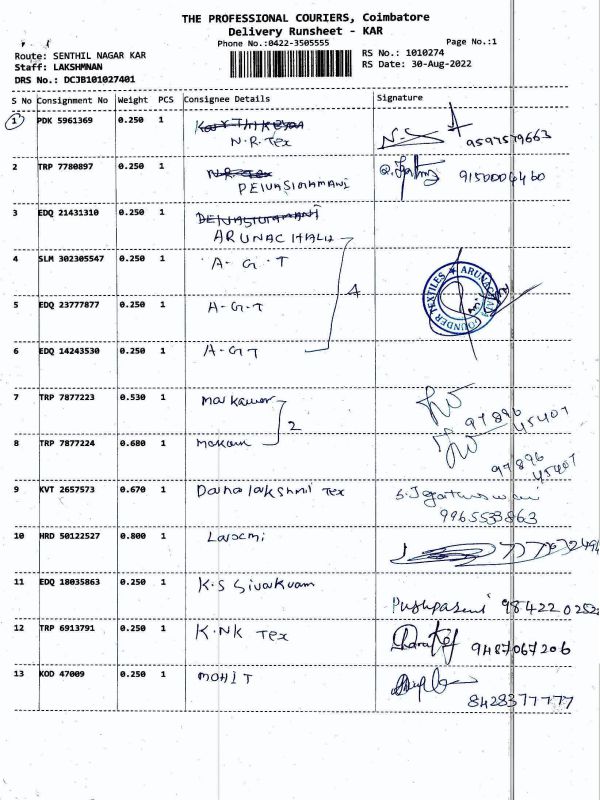 THE PROFESSIONAL COURIERS, Coimbatore
Delivery Runsheet - KAR
Phone No.:0422-3505555 Page No.:1
Route: SENTHIL NAGAR KAR RS No.: 1010274
Staff: LAKSHMNAN RS Date: 30-Aug-2022
DRS No.: DCJB101027401
S No Consignment No Weight PCS Consignee Details Signature
1 PDK 5961369 0.250 1 N.R. Tex 9597579663
2 TRP 7780897 0.250 1 N.R. Tex 9150004460
3 EDQ 21431310 0.250 1
4 SLM 302305547 0.250 1 A-G.T 4
5 EDQ 23777877 0.250 1 A-G.T
6 EDQ 14243530 0.250 1 A-GT
7 TRP 7877223 0.530 1 97896 45407
8 TRP 7877224 0.680 1 2 97896 45407
9 KVT 2657573 0.670 1 Dana lakshmi Tex
9965533863
10 HRD 50122527 0.800 1 Laxmi
11 EDQ 18035863 0.250 1 K.S Sivakvam
12 TRP 6913791 0.250 1 K.NK Tex 9487067206
13 KOD 47009 0.250 1 MOHIT
8428377777